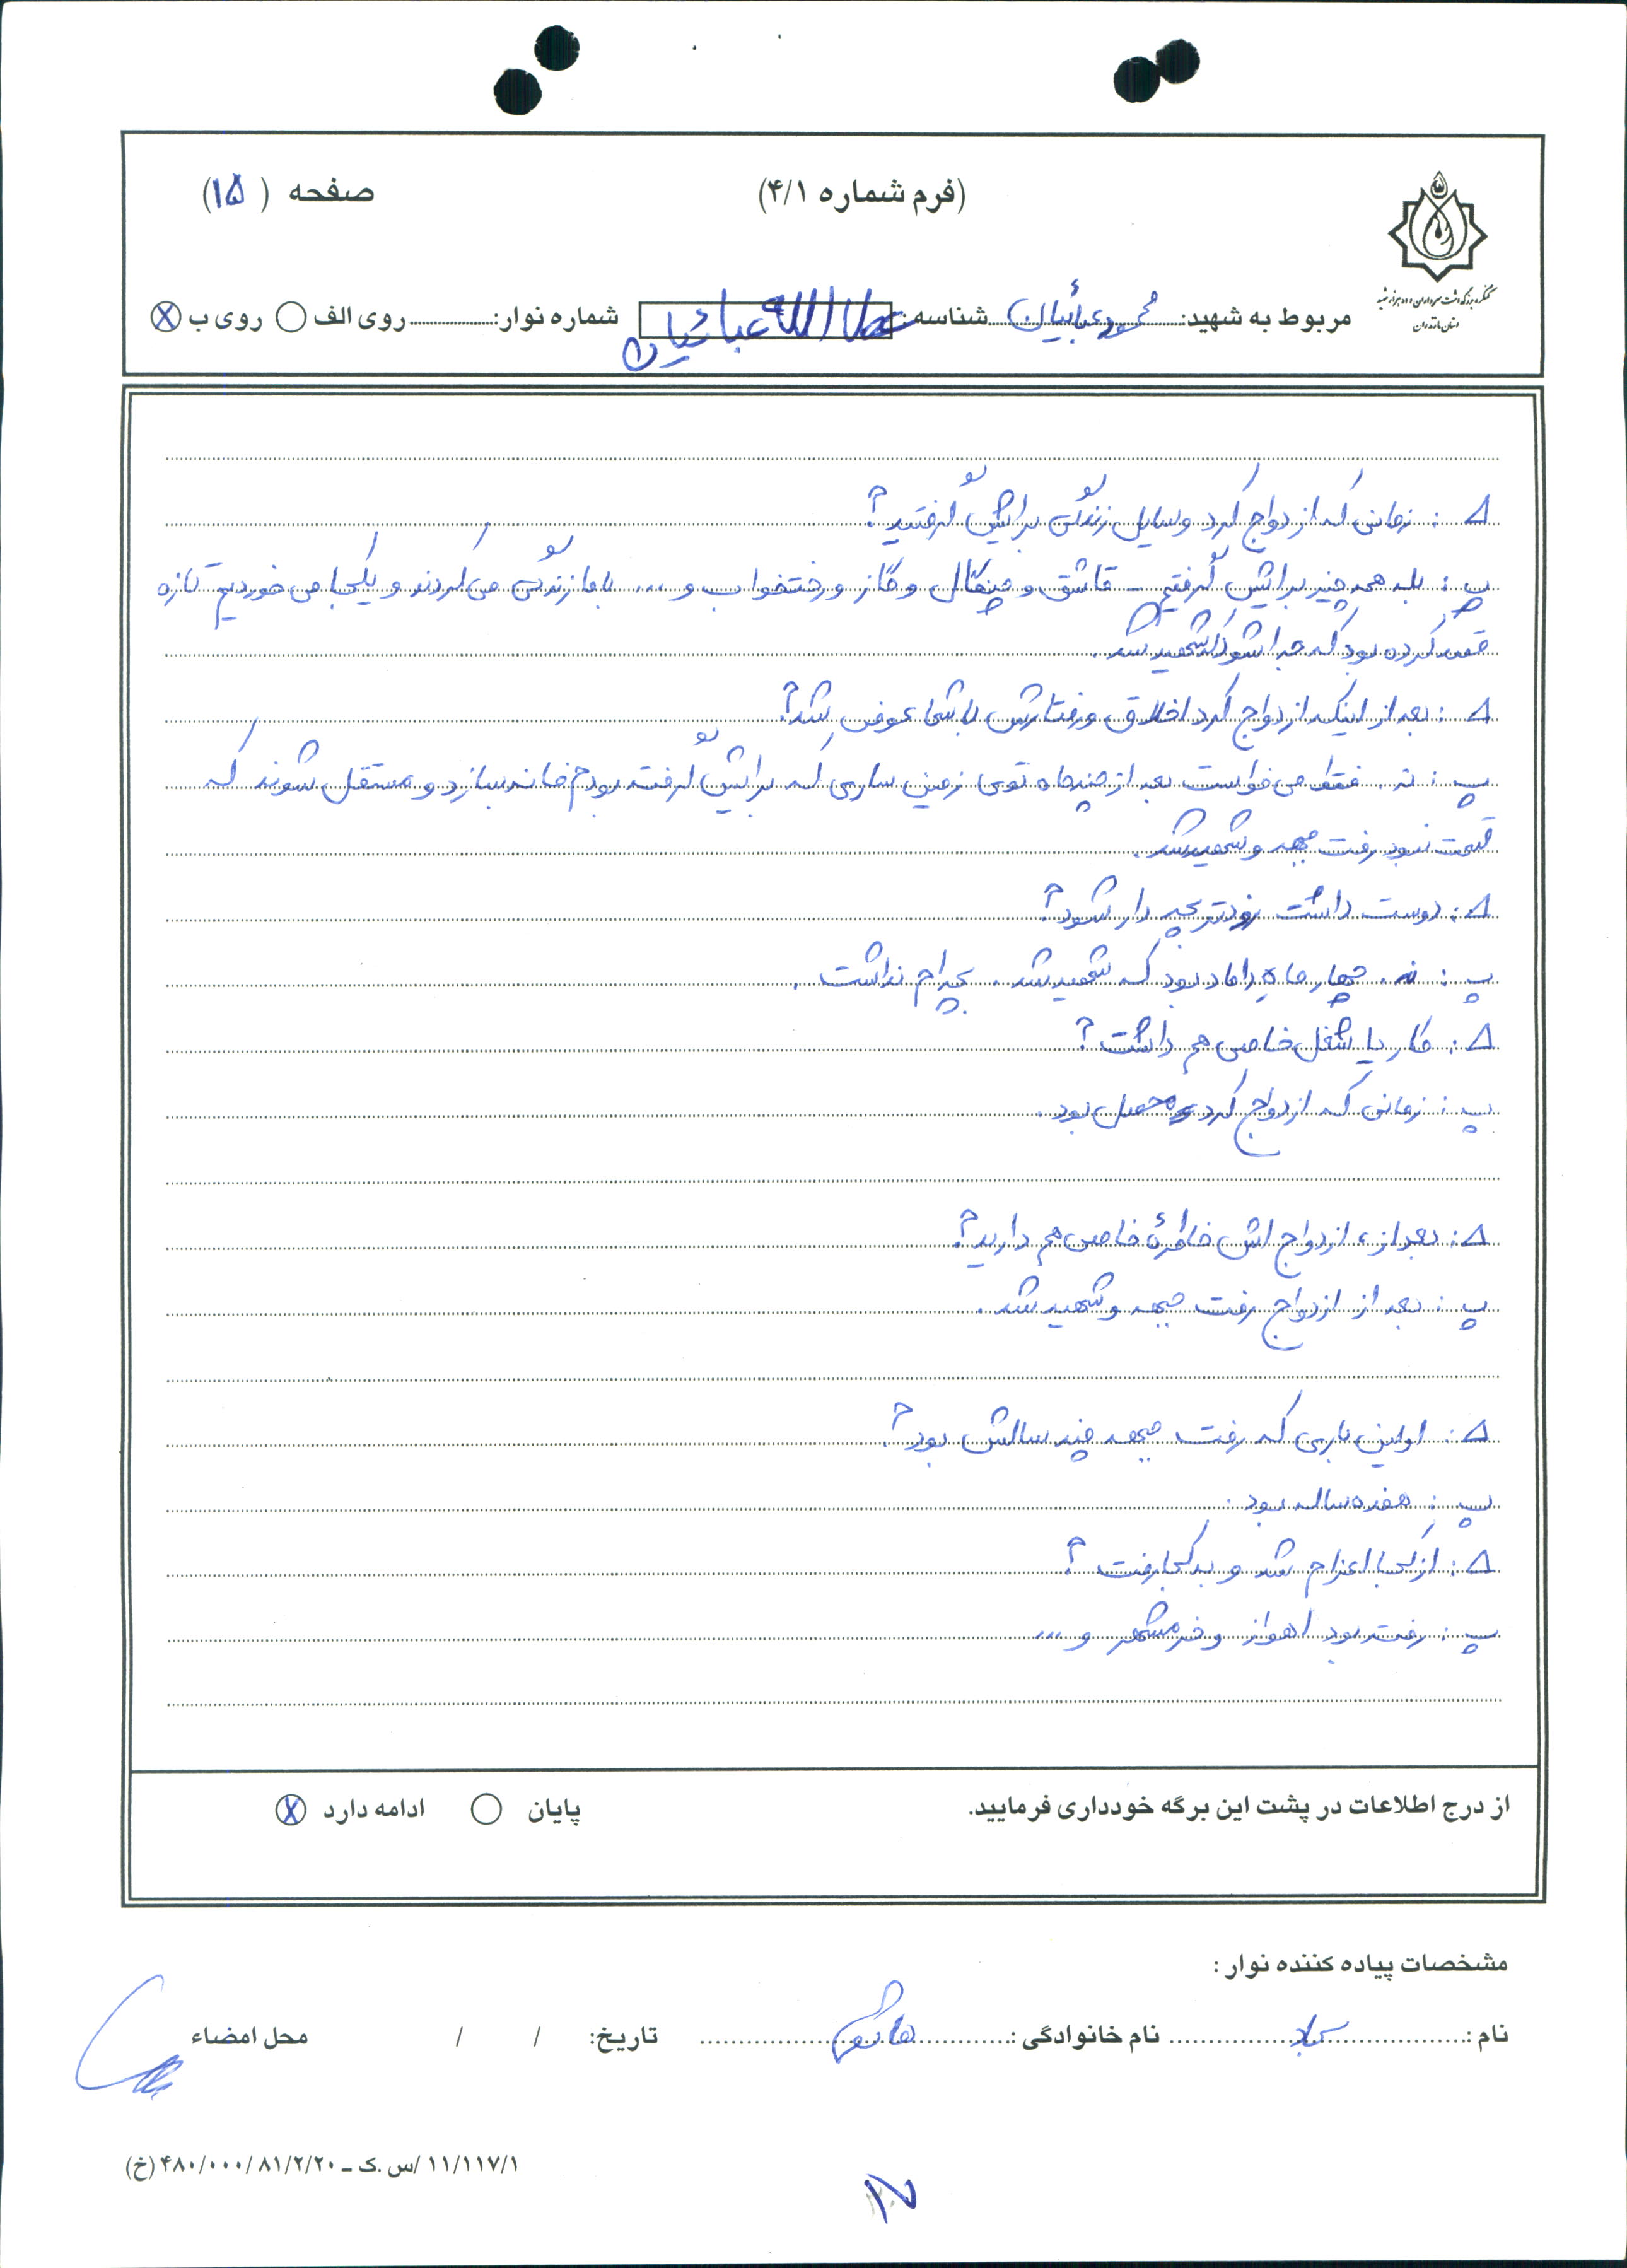 (فرم شماره ۴/۱)
صفحه (۱۵)
کنگره بزرگداشت سرداران و ده هزار شهید
استان مازندران
مربوط به شهید: محمود عبائیان شناسه: عطاالله عبائیان شماره نوار: روی الف روی ب
۵: زمانی که ازدواج کرد وسایل زندگی برایش گرفتید؟
پ: بله همه چیز برایش گرفتیم - قاشق و چنگال و گاز و رختخواب و ... با ما زندگی می‌کردند و یکجا می‌خوردیم تازه
قصد کرده بود که جدا شود که شهید شد.
۵: بعد از اینکه ازدواج کرد اخلاق و رفتارش با شما عوض شد؟
پ: نه. فقط می‌خواست بعد از چند ماه توی زمین ساری که برایش گرفته بودم خانه بسازد و مستقل شوند که
قسمت نبود رفت جبهه و شهید شد.
۵: دوست داشت زودتر بچه دار شود؟
پ: نه. چهار ماه داماد بود که شهید شد. بچه ام نداشت.
۵: کار یا شغل خاصی هم داشت؟
پ: زمانی که ازدواج کرد محصل بود.
۵: بعد از ازدواج اش خاطرهٔ خاصی هم دارید؟
پ: بعد از ازدواج رفت جبهه و شهید شد.
۵: اولین باری که رفت جبهه چند سالش بود؟
پ: هفده ساله بود.
۵: از کجا اعزام شد و به کجا رفت؟
پ: رفته بود اهواز و خرمشهر و ...
از درج اطلاعات در پشت این برگه خودداری فرمایید.
پایان ادامه دارد
مشخصات پیاده کننده نوار:
نام: نام خانوادگی: تاریخ: / / محل امضاء
۱۱/۱۱۷/۱ /س.ک ـ ۴۸۰/۰۰۰/۸۱/۲/۲۰ (خ)